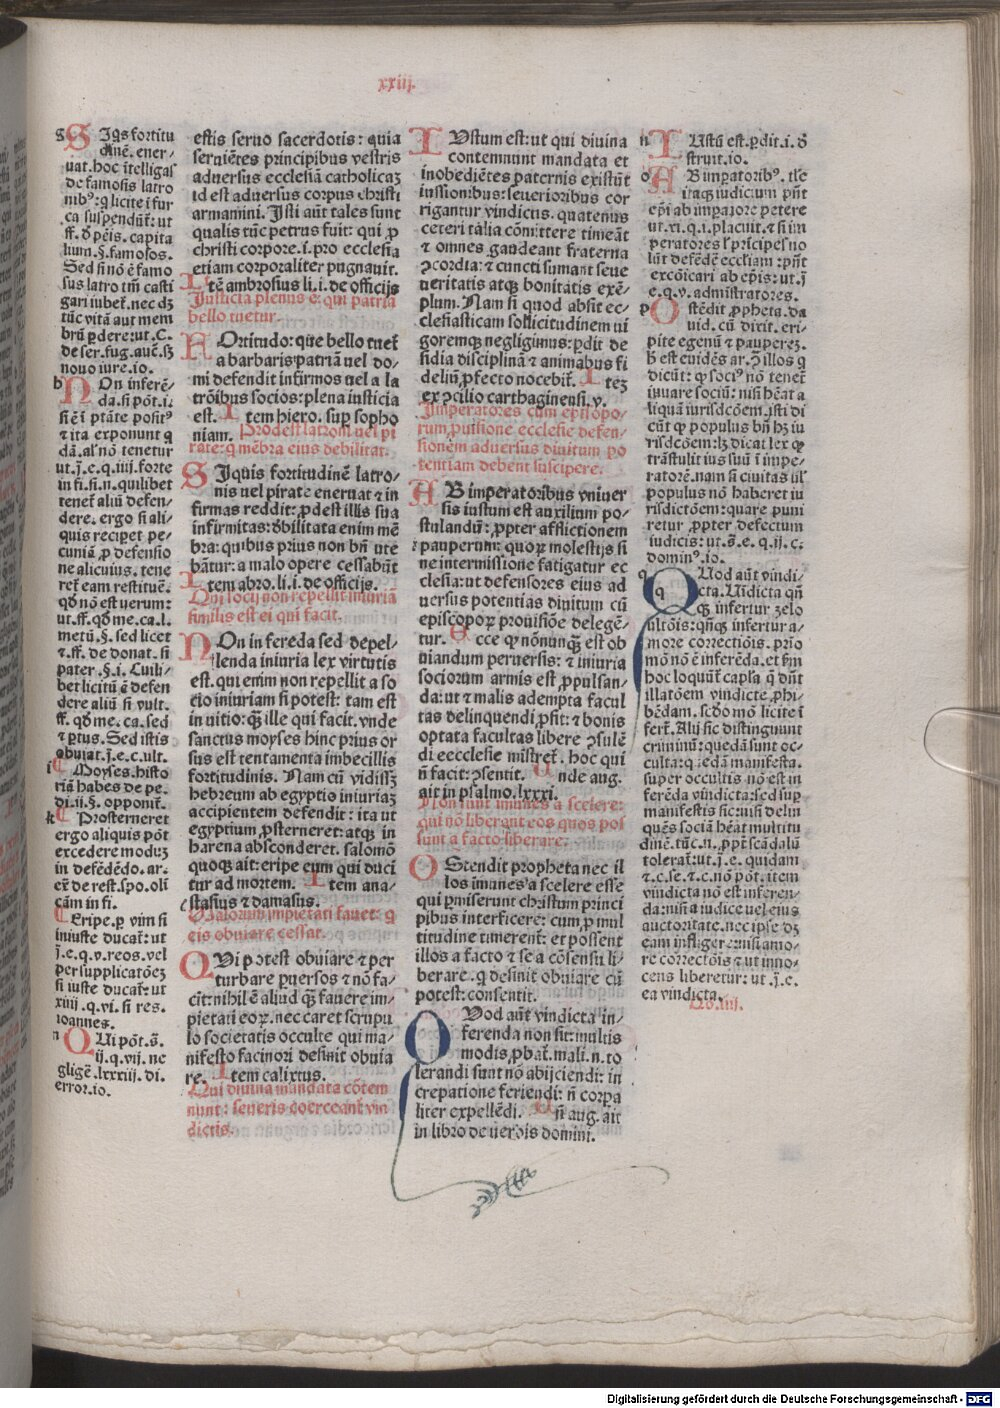 xxiij.
g SIqs fortitu
diné. ener/
uat. hoc ītelligas
de famosis latro
nibꝰ: q̄ licite ī fur
ca suspendūt᷑: ut
ff. d̄ peīs. capita
lium. §. famosos.
Sed si nō ē famo
sus latro tm̄ casti
gari iubet᷑. nec dꝫ
tūc vitā aut mem
brū ꝑdere: ut. C.
de ser. fug. auc̄. sꝫ
nouo iure. io.
h NOn inferē/
da. si pōt. i.
si ē ī ptāte positꝰ
⁊ ita exponunt q
dā. al̓ nō tenetur
ut. j̄. e. q. iiij. forte
in fi. si. n. quilibet
tenet᷑ aliū defen/
dere. ergo si ali/
quis recipet pe/
cuniā ꝓ defensio
ne alicuius. tene
ret᷑ eam restituē.
qd̄ nō est uerum:
ut. ff. qd̄ me. ca. l.
metū. §. sed licet
⁊. ff. de donat. si
pater. §. i. Cuili/
bet licitū ē defen
dere aliū si vult.
ff. qd̄ me. ca. sed
⁊ ptus. Sed istis
obuiat. j̄. e. c. ult.
i ¶ Moyses. histo
riā habes de pe.
di. ii. §. opponit᷑.
k ¶ Prosterneret
ergo aliquis pōt
excedere moduꝫ
in defēdēdo. ar.
ex̄ de rest. spo. oli
cām in fi.
¶ Eripe. ꝑ vim si
iniuste ducat᷑: ut
j̄. e. q. v. reos. vel
per supplicatōeꝫ
si iuste ducat᷑: ut
xiiij. q. vi. si res.
Ioannes.
n QUi pōt. s̄.
ij. q. vij. ne
gligē. lxxxiij. di.
error. io.
estis seruo sacerdotis: quia
seruiētes principibus vestris
aduersus ecclesiā catholicaꝫ
id est aduersus corpus christi
armamini. Isti aūt tales sunt
qualis tūc petrus fuit: qui ꝓ
christi corpore. i. pro ecclesia
etiam corporaliter pugnauit.
Itē ambrosius li. i. de officijs
Iusticia plenus ē: qui patriā
bello tuetur.
FOrtitudo: que bello tuet᷑
a barbaris patriā uel do/
mi defendit infirmos uel a la
trōibus socios: plena iusticia
est. Item hiero. suꝑ sopho
niam. Prodest latroni uel pi
rate: q̄ mēbra eius debilitat.
SIquis fortitudinē latro/
nis uel pirate eneruat ⁊ in
firmas reddit: ꝓdest illis sua
infirmitas: dꝫbilitata enim mē
bra: quibus prius non bn̄ utē
bātur: a malo opere cessabūt
Item abro. li. i. de officijs.
Qui socij non repellit iniuriā
similis est ei qui facit.
NOn in fereda sed depel/
lenda iniuria lex virtutis
est. qui enim non repellit a so
cio iniuriam si potest: tam est
in uitio: q̄ꝫ ille qui facit. vnde
sanctus moyses hinc prius or
sus est tentamenta imbecillis
fortitudinis. Nam cū vidissꝫ
hebreum ab egyptis iniuriaꝫ
accipientem defendit: ita ut
egyptium ꝓsterneret: atqꝫ in
harena absconderet. salomō
quoqꝫ ait: eripe eum qui duci
tur ad mortem. Item ana/
stasius ⁊ damasus.
Malorum impietati fauet: q
eis obuiare cessat.
QVi potest obuiare ⁊ per
turbare ꝑuersos ⁊ nō fa/
cit: nihil ē aliud q̄ꝫ fauere im/
pietati eoꝝ. nec caret scrupu
lo societatis occulte qui ma/
nifesto facinori desinit obuia
re. Item calixtus.
Qui diuina mandata cōtem
nunt: seueris coerceant᷑ vin
dictis.
IVstum est: ut qui diuina
contemnunt mandata et
inobediētes paternis existūt
iussionibus: seuerioribus cor
rigantur vindictis. quatenus
ceteri talia cōmittere timeāt
⁊ omnes gaudeant fraterna
ꝯcordia: ⁊ cuncti sumant seue
ueritatis atqꝫ bonitatis exē/
plum. Nam si quod absit ec/
clesiasticam sollicitudinem ui
goremqꝫ negligimus: ꝑdit de
sidia disciplinā ⁊ animabus fi
deliū ꝓfecto nocebit᷑. Iteꝫ
ex ꝯcilio carthaginensi. v.
Imperatores cum episcopo/
rum puisione ecclesie defen/
sionem aduersus diuitum po
tentiam debent suscipere.
AB imperatoribus vniuer
sis iustum est auxilium po/
stulandū: ꝓpter afflictionem
pauperum: quoꝝ molestijs si
ne intermissione fatigatur ec
clesia: ut defensores eius ad
uersus potentias diuitum cū
episcopoꝝ prouisione delegē/
tur. Ecce qͥ nōnunqꝫ est ob
uiandum peruersis: ⁊ iniuria
sociorum armis est ꝓpulsan/
da: ut ⁊ malis adempta facul
tas delinquendi ꝓsit: ⁊ bonis
optata facultas libere ꝯsulē
di eecclesie mīstret᷑. hoc qui
n̄ facit: ꝯsentit. Unde aug.
ait in psalmo. lxxxi.
Non sunt imunes a scelere:
qui nō liberant eos quos pos
sunt a facto liberare.
OStendit propheta nec il
los imunes a scelere esse
qui ꝑmiserunt christum princi
pibus interficere: cum ꝓ mul
titudine timerent᷑: et possent
illos a facto ⁊ se a cōsensu li/
berare. q̄ desinit obuiare cū
potest: consentit.
QVod aūt vindicta in/
ferenda non sit: multis
modis ꝓbat᷑. mali. n. to
lerandi sunt nō abijciendi: in
crepatione feriendi: n̄ corpa
liter expellēdi. Un̄ aug. ait
in libro de uerbis domini.
n IUstū est. ꝑdit. i. d̄
struit. io.
o AB impatoribꝰ. ille
itaqꝫ iudicium pn̄t
ep̄i ab imꝑatore petere
ut. xi. q. i. placuit. ⁊ si im
peratores l̓ pricipes no
lūt defēdē eccl̓iam: pn̄t
excōicari ab ep̄is: ut. j̄
e. q. v. admīstratores.
p OStēdit ꝓpheta. da
uid. cū dixit. eri/
pite egenū ⁊ pauperēꝫ.
h̓ est euidēs ar. ꝯ illos q̄
dicūt: ꝙ sociꝰ nō tenet᷑
iuuare sociū: nisi hēat a
liquā iurisdcōem. isti di
cūt ꝙ populus bn̄ hꝫ iu
risdcōem: lꝫ dicat lex ꝙ
trāstulit ius suū ī impe/
ratorē. nam si ciuitas ul̓
populus nō haberet iu
risdictōem: quare puni
retur ꝓpter defectum
iudicis: ut. s̄. e. q. ij. c.
dominꝰ. io.
q QUod aūt vindi/
cta. Uidicta qn̄
q̄ꝫ infertur zelo
ultōis: qn̄qꝫ infertur a/
more correctiōis. prio
mō nō ē inferēda. et fm̄
hoc loquūt᷑ capl̓a q̄ dn̄t
illatōem vindicte ꝓhi/
bēdam. scd̄o mō licite ī
fert᷑. Alij sic distinguunt
criminū: quedā sunt oc/
culta: quedā manifesta.
super occultis nō est in
ferēda vindicta: sed suꝑ
manifestis sic: nisi delin
quēs sociā hēat multitu
dinē. tūc. n. ꝓpt̄ scādalū
tolerat᷑: ut. j̄. e. quidam
⁊. c. se. ⁊. c. nō pōt. item
vindicta nō est inferen/
da: nisi a iudice uel eius
auctoritate. nec ipse dꝫ
eam infligere: nisi amo/
re correctōis ⁊ ut inno/
cens liberetur: ut. j̄. e.
ea vindicta.
Digitalisierung gefördert durch die Deutsche Forschungsgemeinschaft - DFG